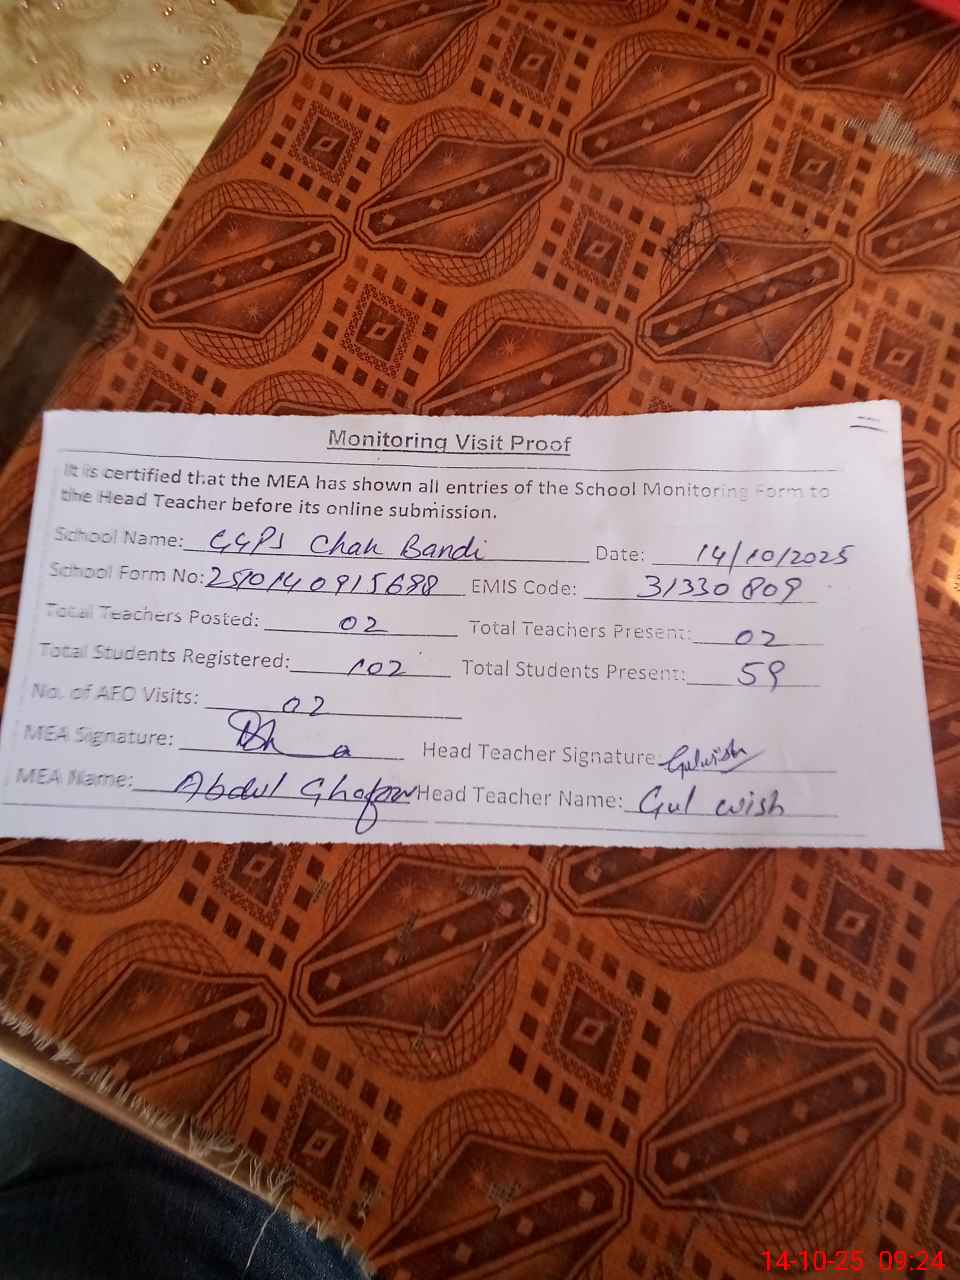 Monitoring Visit Proof
It is certified that the MEA has shown all entries of the School Monitoring Form to
the Head Teacher before its online submission.
School Name: GGPS Chak Bandi Date: 14/10/2025
School Form No: 2510140915698 EMIS Code: 31330809
Total Teachers Posted: 02 Total Teachers Present: 02
Total Students Registered: 102 Total Students Present: 59
No. of AEO Visits: 02
MEA Signature: Head Teacher Signature: Gulwish
MEA Name: Abdul Ghafoor Head Teacher Name: Gul wish
14-10-25 09:24